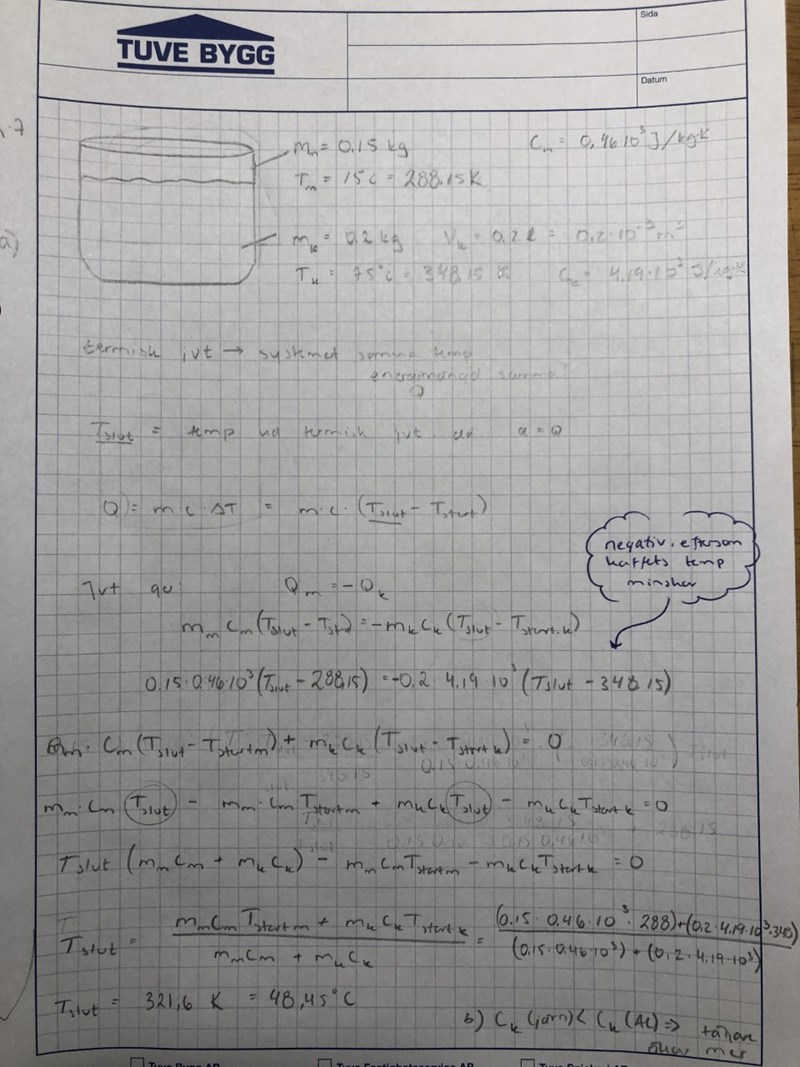 TUVE BYGG
Sida
Datum
.7
m = 0.15 kg
Cm = 0,46 10³ J/kg·K
Tm = 15°C = 288.15K
a)
mk = 0.2 kg Vk = 0.2 l = 0.2·10⁻³ m³
Tk = 75°C = 348,15 K Ck = 4.19·10³ J/kg·K
termisk jvt → systemet samma temp
energimängd samma
Tslut = temp vid termisk jvt. då a = 0
Q = m c ΔT = m·c·(Tslut - Tstart)
negativ, eftersom
kaffets temp
minskar
Jvt ger: Qm = -Qk
mm Cm (Tslut - Tst) = -mk Ck (Tslut - Tstart.k)
0.15·0.46·10³ (Tslut - 288,15) = -0.2· 4.19 10³ (Tslut - 348.15)
Cm (Tslut - Tstartm) + mk Ck (Tslut - Tstart k) = 0
mm·Cm Tslut - mm·Cm Tstartm + mk Ck Tslut - mk Ck Tstart k = 0
Tslut (mm Cm + mk Ck) - mm Cm Tstartm - mk Ck Tstart k = 0
Tslut = mm Cm Tstart m + mk Ck Tstart k / mm Cm + mk Ck = (0.15·0.46·10³·288)+(0.2·4.19·10³·340) / (0.15·0.46·10³) + (0.2·4.19·10³)
Tslut = 321,6 K = 48,45°C
b) Ck (järn) < Ck (Al) ⇒
ökar mer